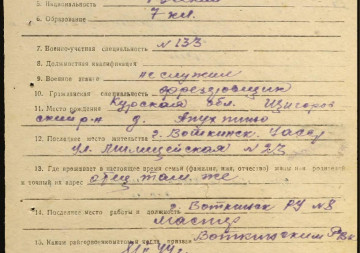 5. Национальность
6. Образование 7 кл.
7. Военно-учетная специальность № 133
8. Должностная квалификация
9. Военное звание не служил
10. Гражданская специальность фрезеровщик
11. Место рождения Курская обл. Щигров
ский р-н д.
12. Последнее место жительства г. Воткинск
ул. Милицейская № 23
13. Где проживает в настоящее время семья (фамилия, имя, отчество) жены или родителей
и точный их адрес отец там же
14. Последнее место работы и должность г. Воткинск РУ №8
мастер
15. Каким райгорвоенкоматом и когда призван Воткинским РВК